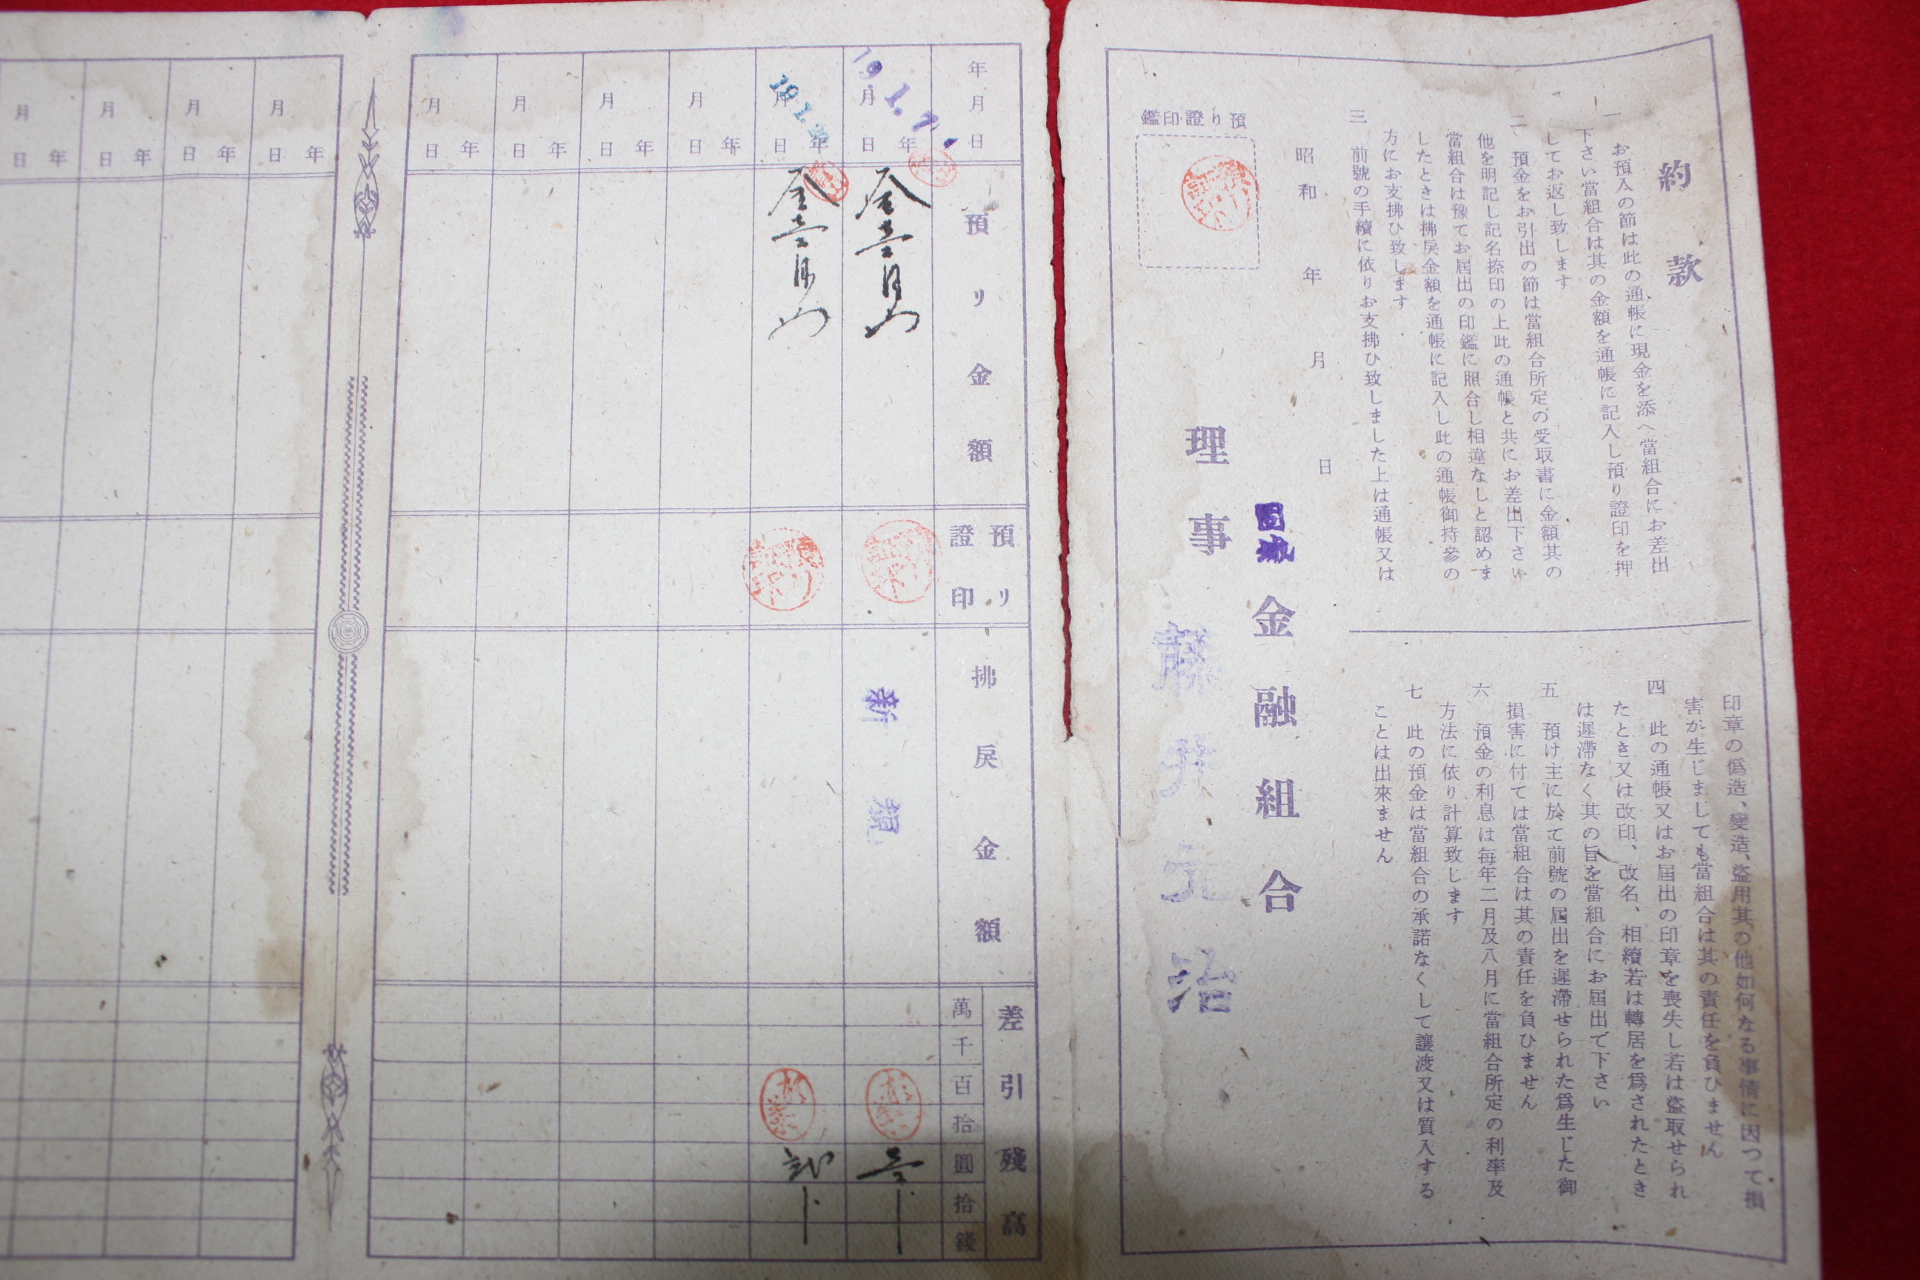 約款
一 お預入の節は此の通帳に現金を添へ當組合にお差出
下さい當組合は其の金額を通帳に記入し預り證印を押
してお返し致します
二 預金をお引出の節は當組合所定の受取書に金額其の
他を明記し記名捺印の上此の通帳と共にお差出下さい
當組合は豫てお屆出の印鑑に照合し相違なしと認めま
したときは拂戾金額を通帳に記入し此の通帳御持參の
方にお支拂ひ致します
三 前號の手續に依りお支拂ひ致しました上は通帳又は
印章の僞造、變造、盜用其の他如何なる事情に因つて損
害が生じましても當組合は其の責任を負ひません
四 此の通帳又はお屆出の印章を喪失し若は盜取せられ
たとき又は改印、改名、相續若は轉居を爲されたとき
は遲滯なく其の旨を當組合にお屆出で下さい
五 預け主に於て前號の屆出を遲滯せられた爲生じた御
損害に付ては當組合は其の責任を負ひません
六 預金の利息は每年二月及八月に當組合所定の利率及
方法に依り計算致します
七 此の預金は當組合の承諾なくして讓渡又は質入する
ことは出來ません
昭和 年 月 日
固城 金融組合
理事 藤井元治
預り證印鑑
年月日
預リ金額
預リ證印
拂戾金額
差引殘高
萬 千 百 拾 圓 拾 錢
19.1.7
年 月 日
金壹圓也
新規
壹
年 月 日
金壹圓也
貳
年 月 日
年 月 日
年 月 日
年 月 日
年 月 日
年 月 日
年 月 日
年 月 日